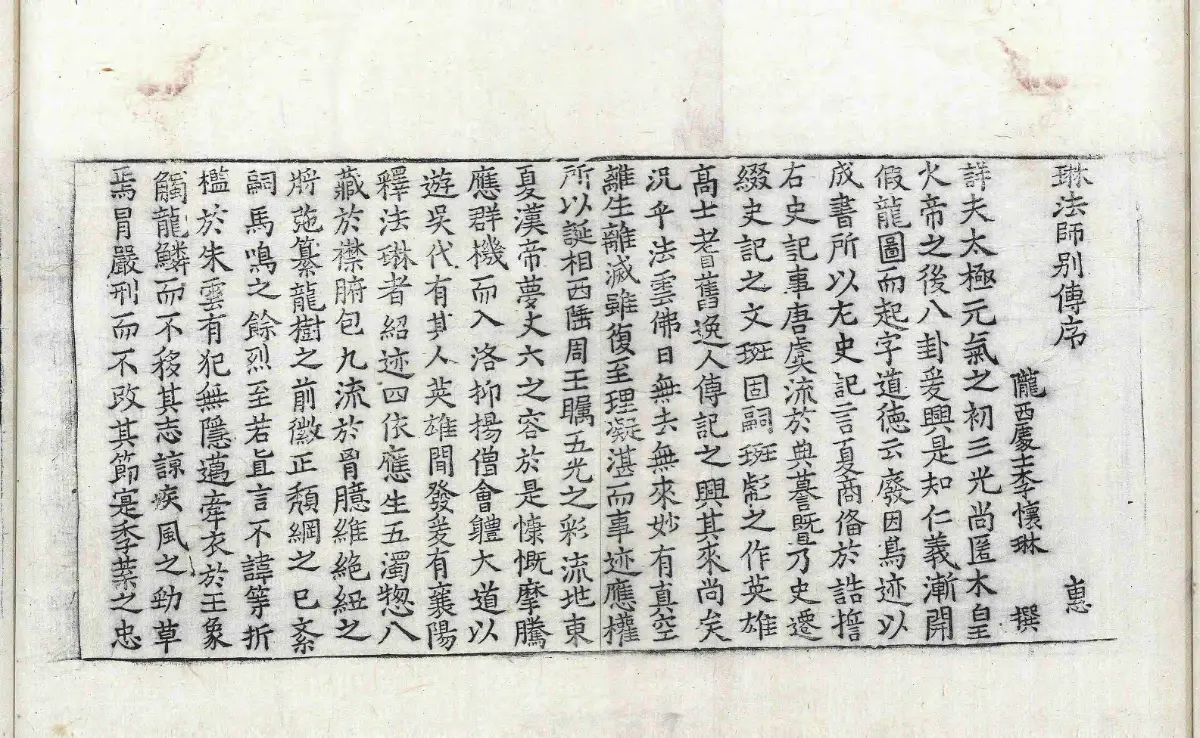 琳法師別傳序 惠
隴西處士李懷琳 撰
詳夫太極元氣之初三光尚匿木皇
火帝之後八卦爰興是知仁義漸開
假龍圖而起字道德云廢因鳥迹以
成書所以左史記言夏商備於誥擔
右史記事唐虞流於典謩暨乃史遷
綴史記之文班固嗣班彪之作英雄
高士耆舊逸人傳記之興其來尚矣
況乎法雲佛日無去無來妙有真空
離生離滅雖復至理凝湛而事迹應權
所以誕相西陲周王矚五光之彩流地東
夏漢帝夢丈六之容於是慷慨摩騰
應群機而入洛抑揚僧會軆大道以
遊吳代有其人英雄間發爰有襄陽
釋法琳者紹迹四依應生五濁惣八
藏於襟腑包九流於胷臆維絕紐之
將弛纂龍樹之前徽正頹綱之已紊
嗣馬鳴之餘烈至若直言不諱等折
檻於朱雲有犯無隱邁牽衣於王象
觸龍鱗而不移其志諒疾風之勁草
焉冒嚴刑而不改其節寔季葉之忠